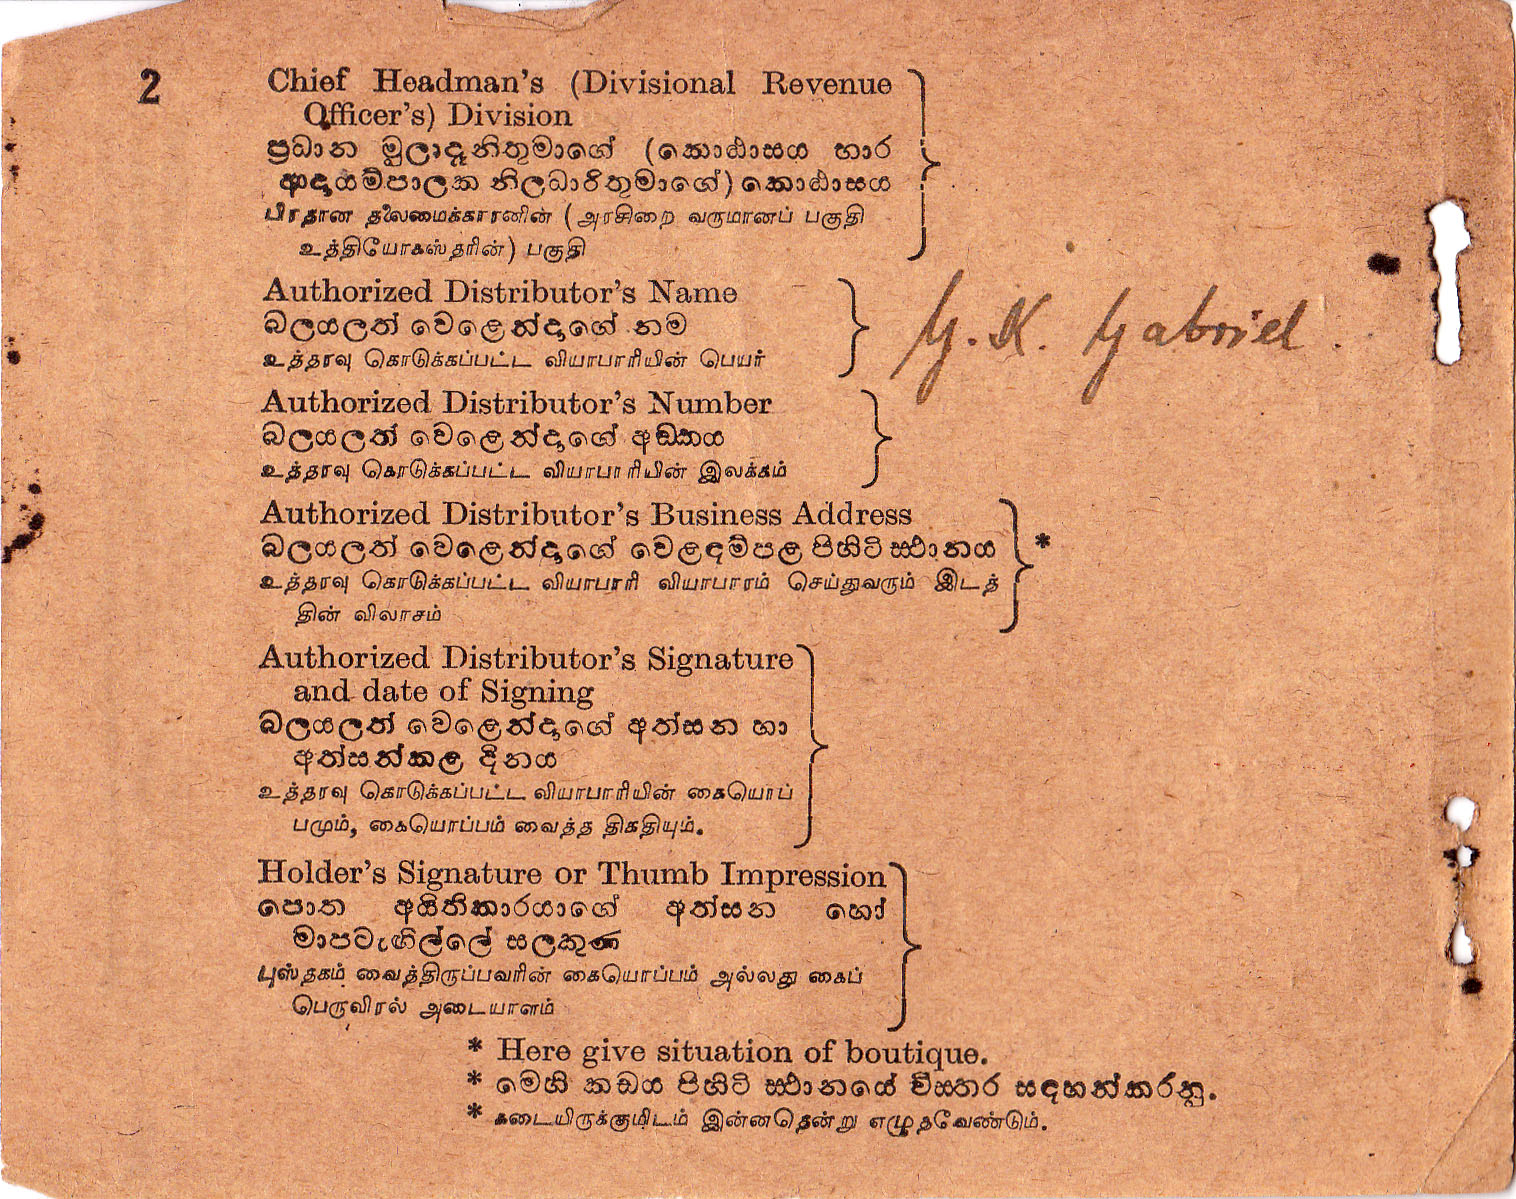 2
Chief Headman's (Divisional Revenue
Officer's) Division
ප්‍රධාන මුලාදෑනිතුමාගේ (කොඨාසය භාර
ආදායම්පාලක නිලධාරිතුමාගේ) කොඨාසය
பிரதான தலைமைக்காரனின் (அரசிறை வருமானப் பகுதி
உத்தியோகஸ்தரின்) பகுதி
Authorized Distributor's Name
බලයලත් වෙළෙන්දාගේ නම
உத்தரவு கொடுக்கப்பட்ட வியாபாரியின் பெயர்
G. K. Gabriel.
Authorized Distributor's Number
බලයලත් වෙළෙන්දාගේ අඞ්කය
உத்தரவு கொடுக்கப்பட்ட வியாபாரியின் இலக்கம்
Authorized Distributor's Business Address
බලයලත් වෙළෙන්දාගේ වෙළඳම්පළ පිහිටි ස්ථානය *
உத்தரவு கொடுக்கப்பட்ட வியாபாரி வியாபாரம் செய்துவரும் இடத்
தின் விலாசம்
Authorized Distributor's Signature
and date of Signing
බලයලත් වෙළෙන්දාගේ අත්සන හා
අත්සන්කළ දිනය
உத்தரவு கொடுக்கப்பட்ட வியாபாரியின் கையொப்
பமும், கையொப்பம் வைத்த திகதியும்.
Holder's Signature or Thumb Impression
පොත අයිතිකාරයාගේ අත්සන හෝ
මාපටැඟිල්ලේ සලකුණ
புஸ்தகம் வைத்திருப்பவரின் கையொப்பம் அல்லது கைப்
பெருவிரல் அடையாளம்
* Here give situation of boutique.
* මෙහි කඩය පිහිටි ස්ථානයේ විස්තර සඳහන්කරනු.
* கடையிருக்குமிடம் இன்னதென்று எழுதவேண்டும்.